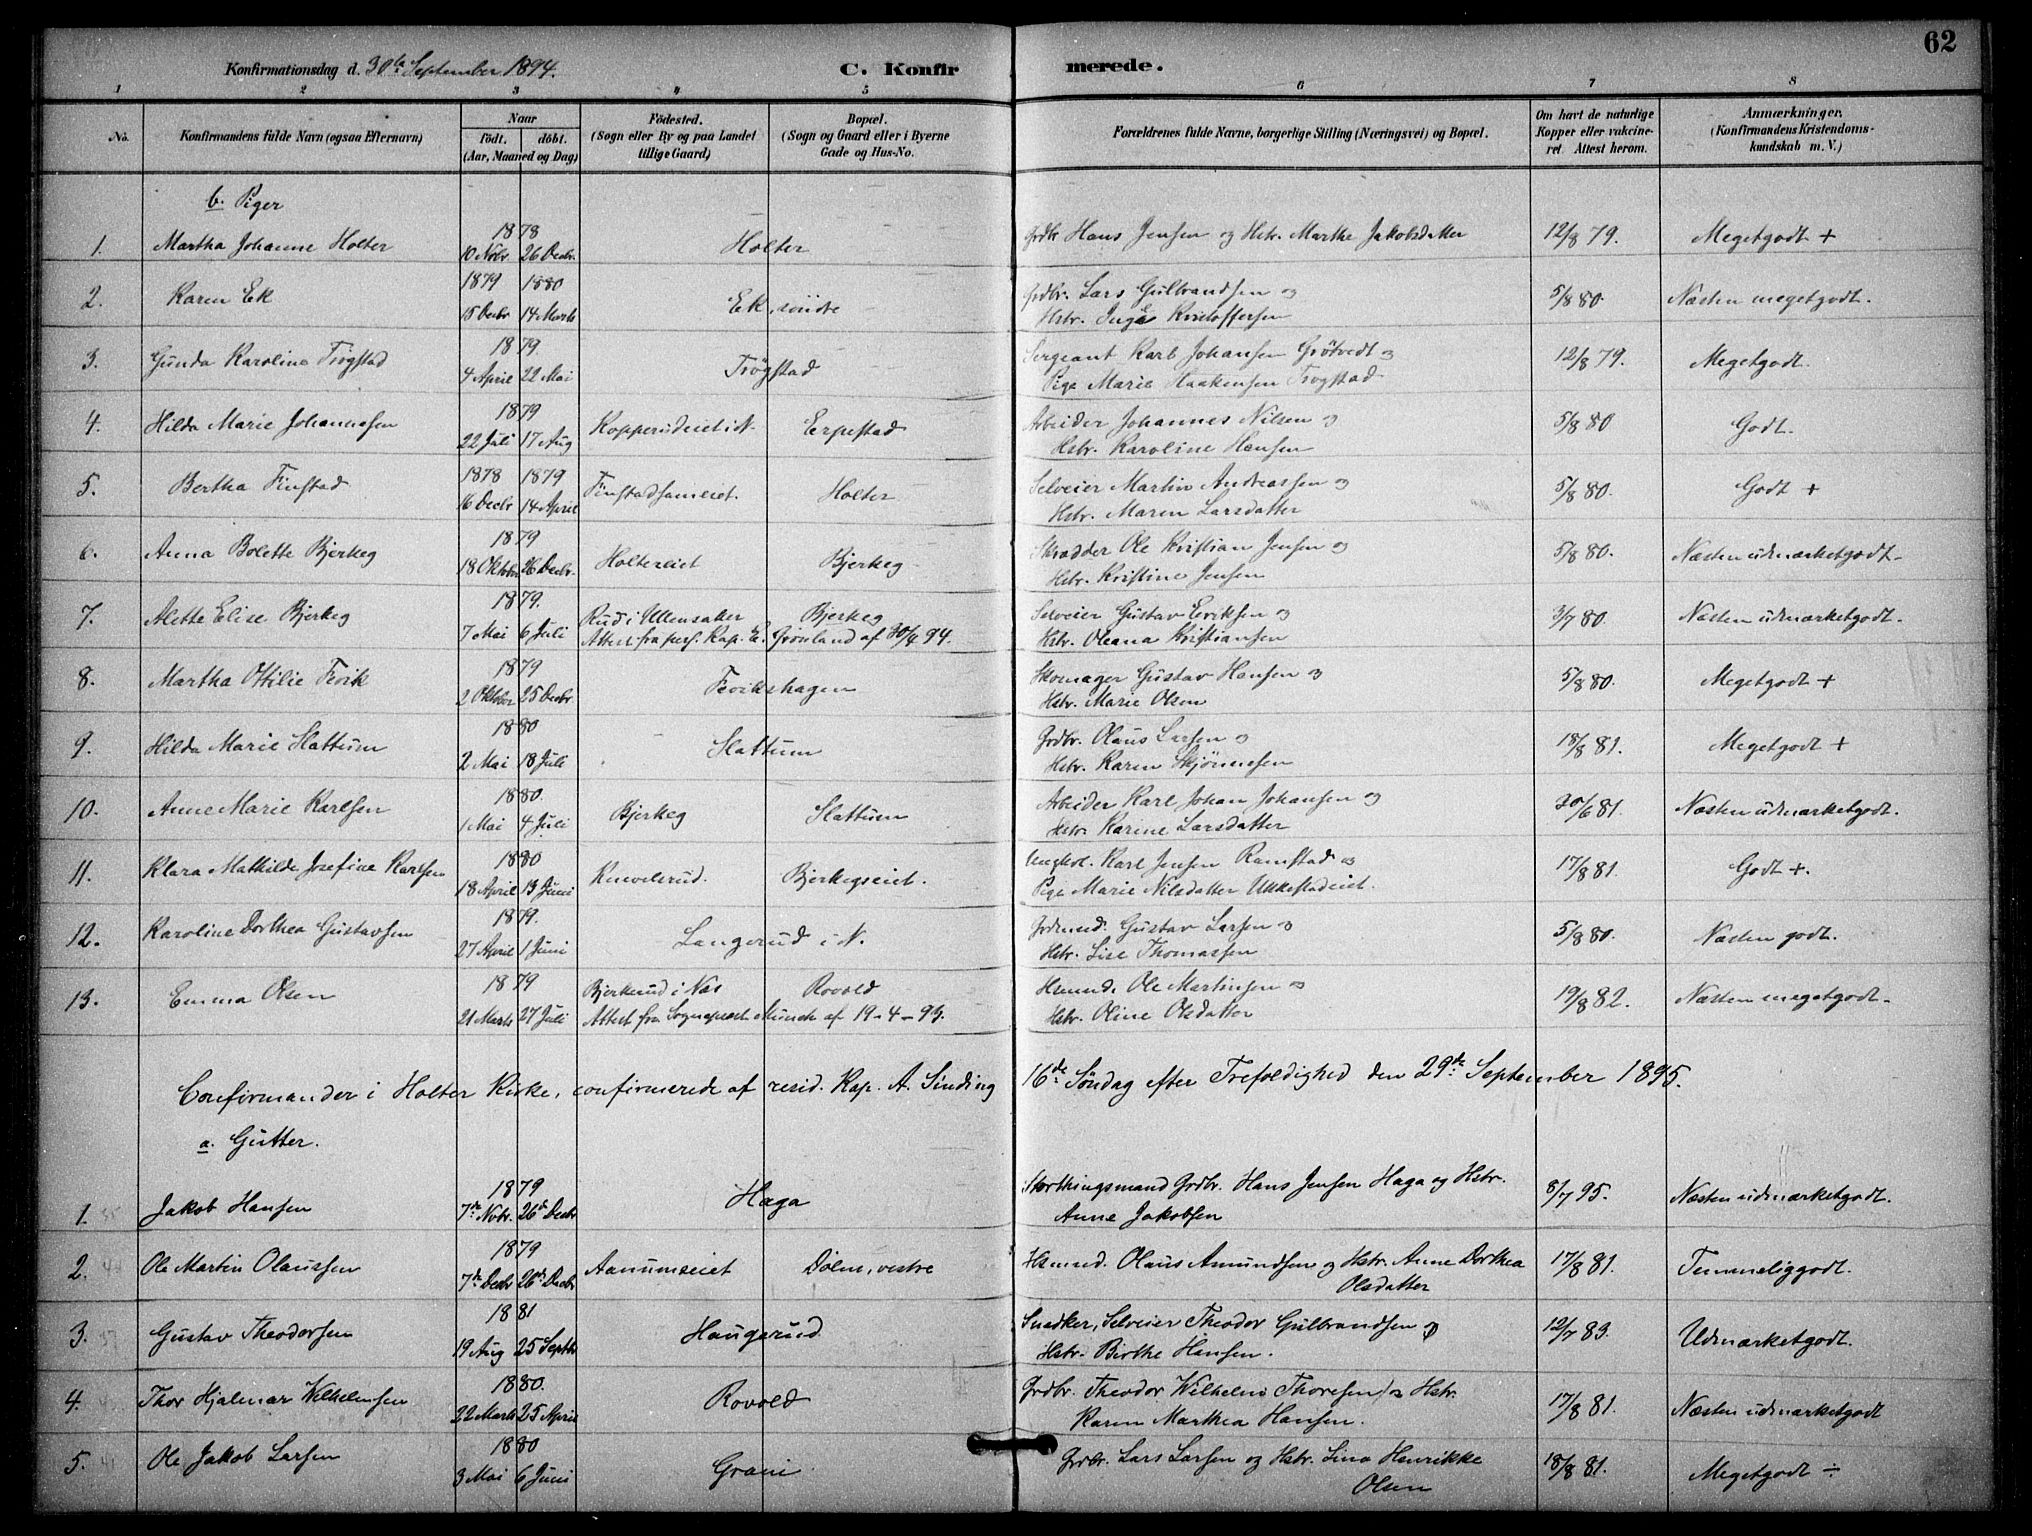 62
Konfirmationsdag d. 30te September 1894. C. Konfirmerede.
1 2 3 4 5 6 7 8
No. Konfirmandens fulde Navn (ogsaa Efternavn) Naar födt. döbt. (Aar, Maaned og Dag) Födested. (Sogn eller By og paa Landet tillige Gaard) Bopæl. (Sogn og Gaard eller i Byerne Gade og Hus-No. Forældrenes fulde Navne, borgerlige Stilling (Næringsvei) og Bopæl. Om havt de naturlige Kopper eller vakcineret. Attest herom. Anmærkninger. (Konfirmandens Kristendomskundskab m. V.)
b. Piger
1. Martha Johanne Holter 1878 10 Novbr 26 Decbr. Holter Grdbr. Hans Jensen og Hstr. Marthe Jakobsdatter 12/8 79. Megetgodt +
2. Karen Ek 1879 1880 15 Decbr 14 Marts Ek, söndre Grdbr. Lars Gulbrandsen og
Hstr. Inga Kristoffersen 5/8 80. Næsten megetgodt.
3. Gunda Karoline Trögstad 1879. 4 April 22 Mai Trögstad Sergeant Karl Johansen Grötvedt og
Pige Marie Haakensen Trögstad 12/8 79. Megetgodt.
4. Hilda Marie Johannesen 1879 22 Juli 17 Aug Kopperudeiet i N. Erpestad Arbeider Johannes Nilsen og
Hstr. Karoline Hansen 5/8 80 Godt.
5. Bertha Finstad 1878 1879 16 Decbr 14 April Finstadsameiet. Holter Selveier Martin Andreassen og
Hstr. Maren Larsdatter 5/8 80. Godt +
6. Anna Bolette Bjerkeg 1879 18 Oktober 26 Decbr. Holtereiet Bjerkeg Skrædder Ole Kristian Jensen og
Hstr. Kristine Jensen 5/8 80. Næsten udmærketgodt.
7. Alette Elise Bjerkeg 1879. 7 Mai 6 Juli Rud i Ullensaker Bjerkeg
Attest fra pers. Kap. E. Grønland af 30/4 94. Selveier Gustav Eriksen og
Hstr. Oleana Kristiansen 3/7 80. Næsten udmærketgodt.
8. Martha Ottilie Fevik 1879 2 Oktober 25 Decbr. Fevikshagen Skomager Gustav Hansen og
Hstr. Marie Olsen 5/8 80. Megetgodt +
9. Hilda Marie Slattum 1880 2 Mai 18 Juli Slattum Grdbr. Olaus Larsen og
Hstr. Karen Skjönnesen 18/8 81. Megetgodt +
10. Anne Marie Karlsen 1880. 1 Mai 4 Juli Bjerkeg Slattum Arbeider Karl Johan Johansen og
Hstr. Karine Larsdatter 30/6 81. Næsten udmærketgodt.
11. Klara Mathilde Josefine Karlsen 1880 18 April 13 Juni Bjerkegseiet. Ungkal. Karl Jensen Ramstad og
Pige Marie Nilsdatter Ukkestadeiet. 17/8 81. Godt +.
12. Karoline Dorthea Gustavsen 1879. 27 April 1 Juni Langerud i N. Grdmnd. Gustav Larsen og
Hstr. Lise Thomassen 5/8 80. Næsten godt.
13. Emma Olsen 1879 21 Marts 27 Juli Bjerkerud i Næs Rovold
Attest fra Sognepræst Münch af 19-4-93. Hsmnd. Ole Martinsen og
Hstr. Oline Olsdatter 19/8 82. Næsten megetgodt.
Confirmander i Holter Kirke, confirmerede af resid. Kap. A. Sinding 16de Söndag efter Trefoldighed den 29de September 1895.
a. Gutter.
1. Jakob Hansen 1879 7de Novbr. 26de Decbr Haga Storthingsmand Grdbr. Hans Jensen Haga og Hstr.
Anne Jakobsen 8/7 95. Næsten udmærketgodt.
2. Ole Martin Olaussen 1879 7de Decbr 26de Decbr Aanumseiet Dølen, vestre Hsmnd. Olaus Amundsen og Hstr. Anne Dorthea
Olsdatter 17/8 81. Temmeliggodt.
3. Gustav Theodorsen 1881 19 Aug 25 Septbr Haugerud Snedker, Selveier Theodor Gulbrandsen og
Hstr. Birthe Hansen. 12/7 83. Udmærketgodt.
4. Thor Hjalmar Wilhelmsen 1880. 22 Marts 25 April Rovold Grdbr. Theodor Wilhelm Thoresen og Hstr.
Karen Marthea Hansen. 17/8 81. Næsten udmærketgodt
5. Ole Jakob Larsen 1880 3 Mai 6 Juni Grani Grdbr. Lars Larsen og Hstr. Lina Henrikke
Olsen 18/8 81. Megetgodt ÷